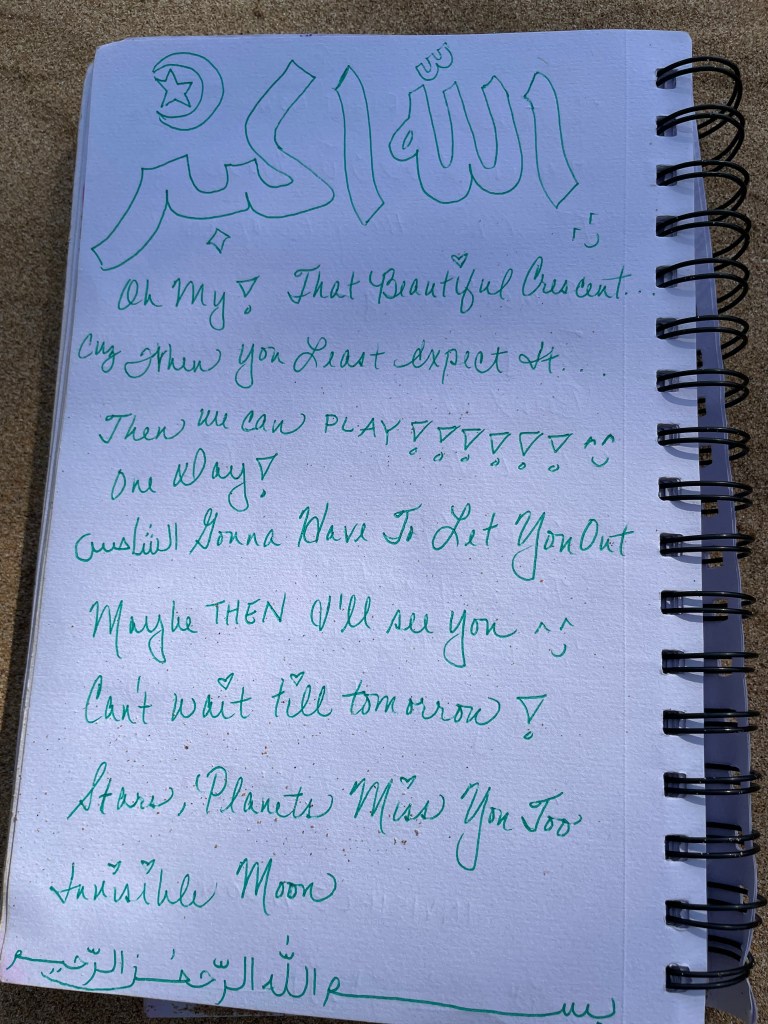 الله اكبر
Oh My! That Beautiful Crescent...
Cuz When You Least Expect It....
Then we can PLAY!!!!!!
One Day!
الشامس Gonna Have To Let You Out
Maybe THEN I'll see you
Can't wait till tomorrow!
Stars, Planets Miss You Too
Invisible Moon
بسم الله الرّحمٰن الرّحيم